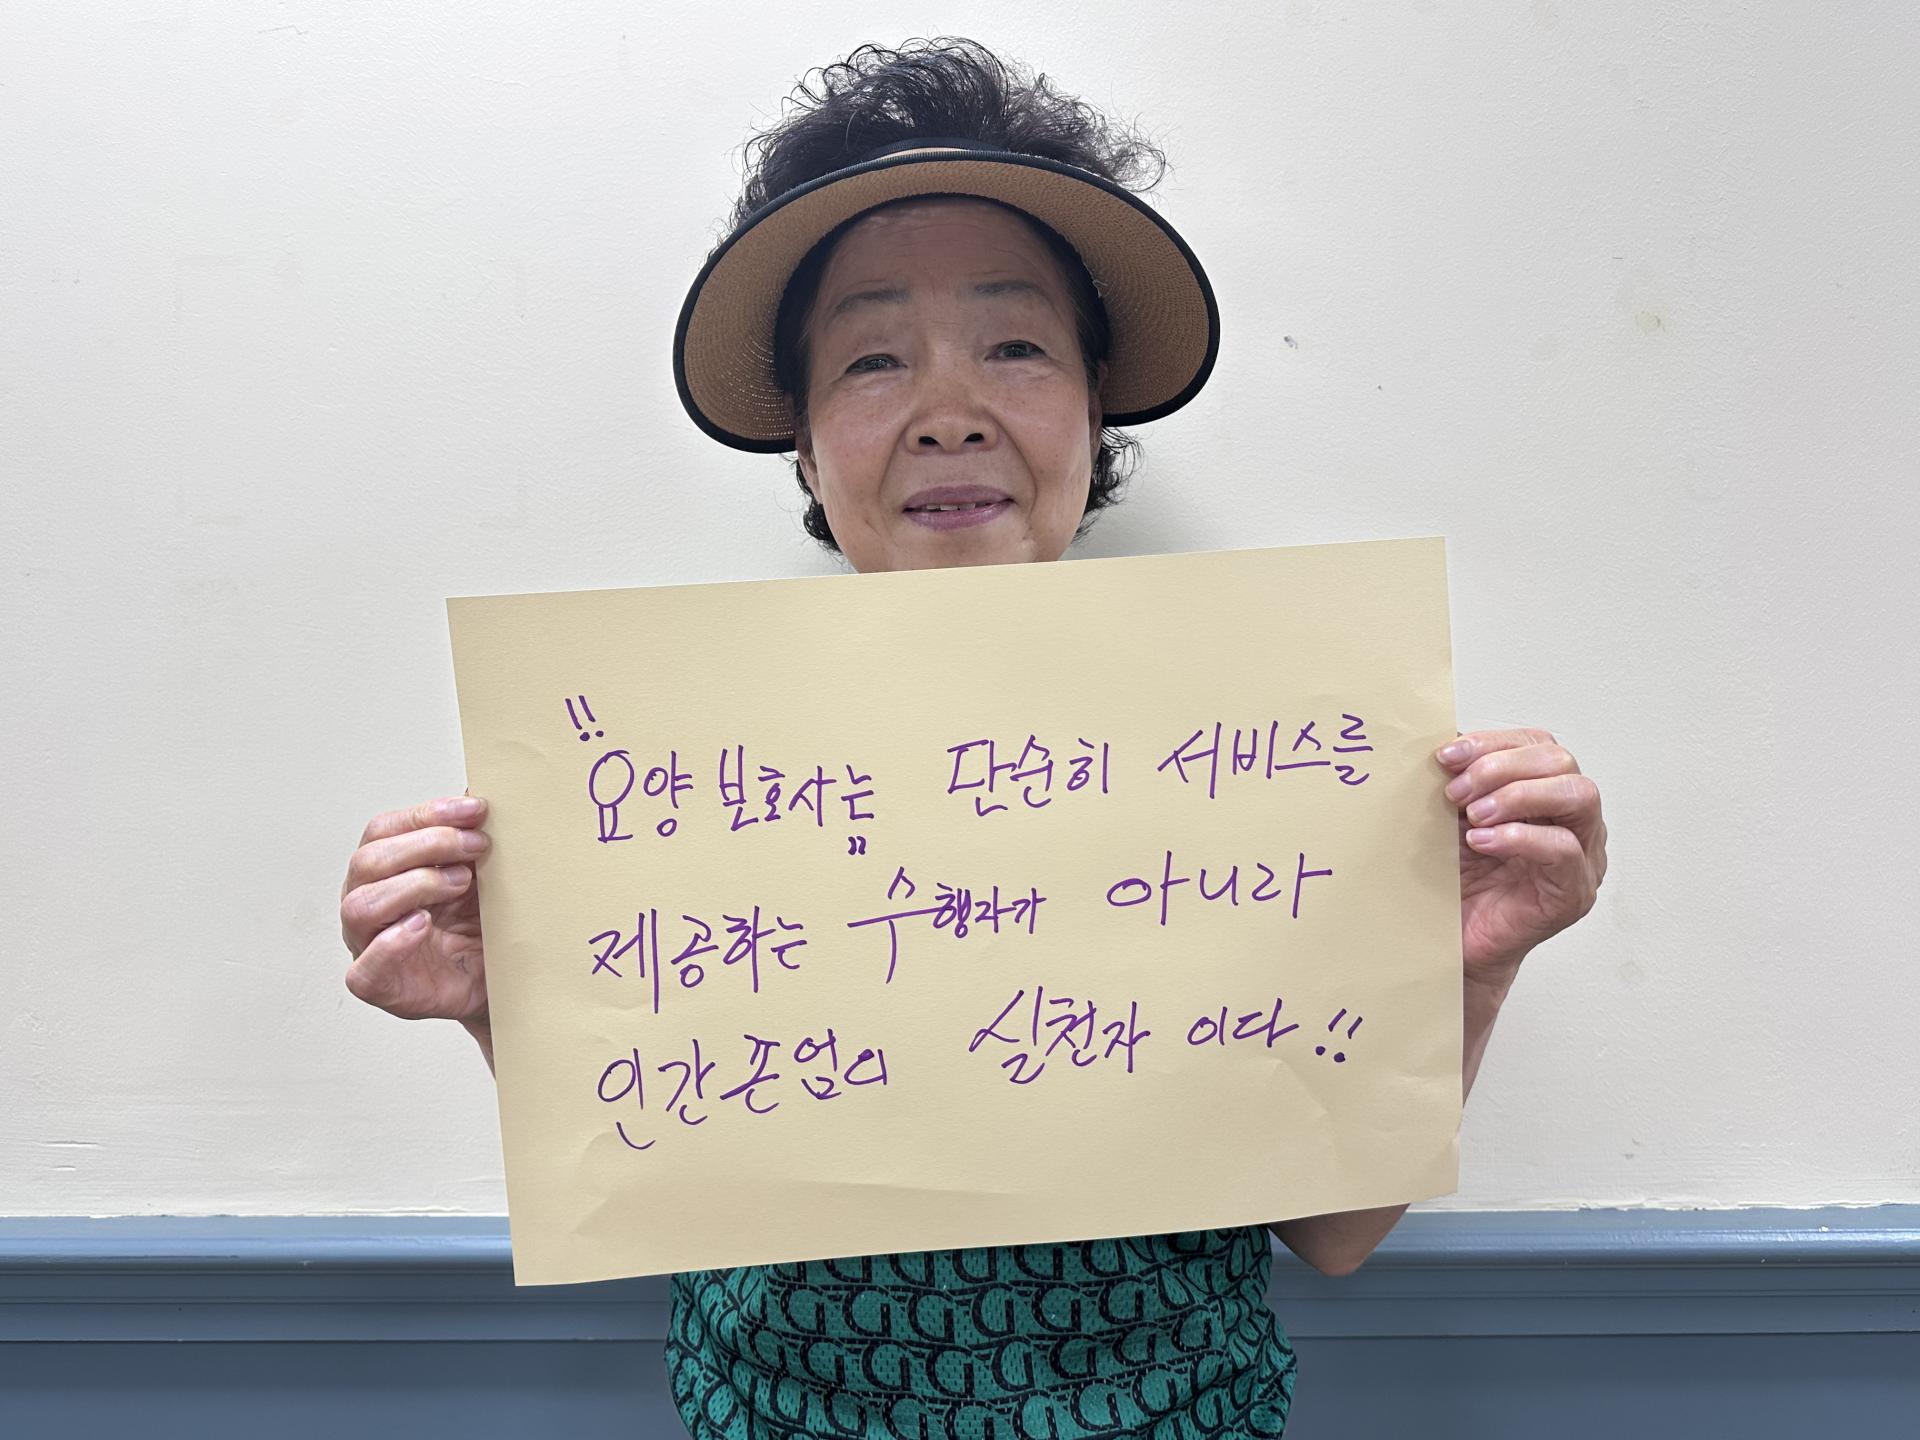 !!
요양 보호사는 단순히 서비스를
제공하는 수행자가 아니라
인간 존엄의 실천자 이다 !!